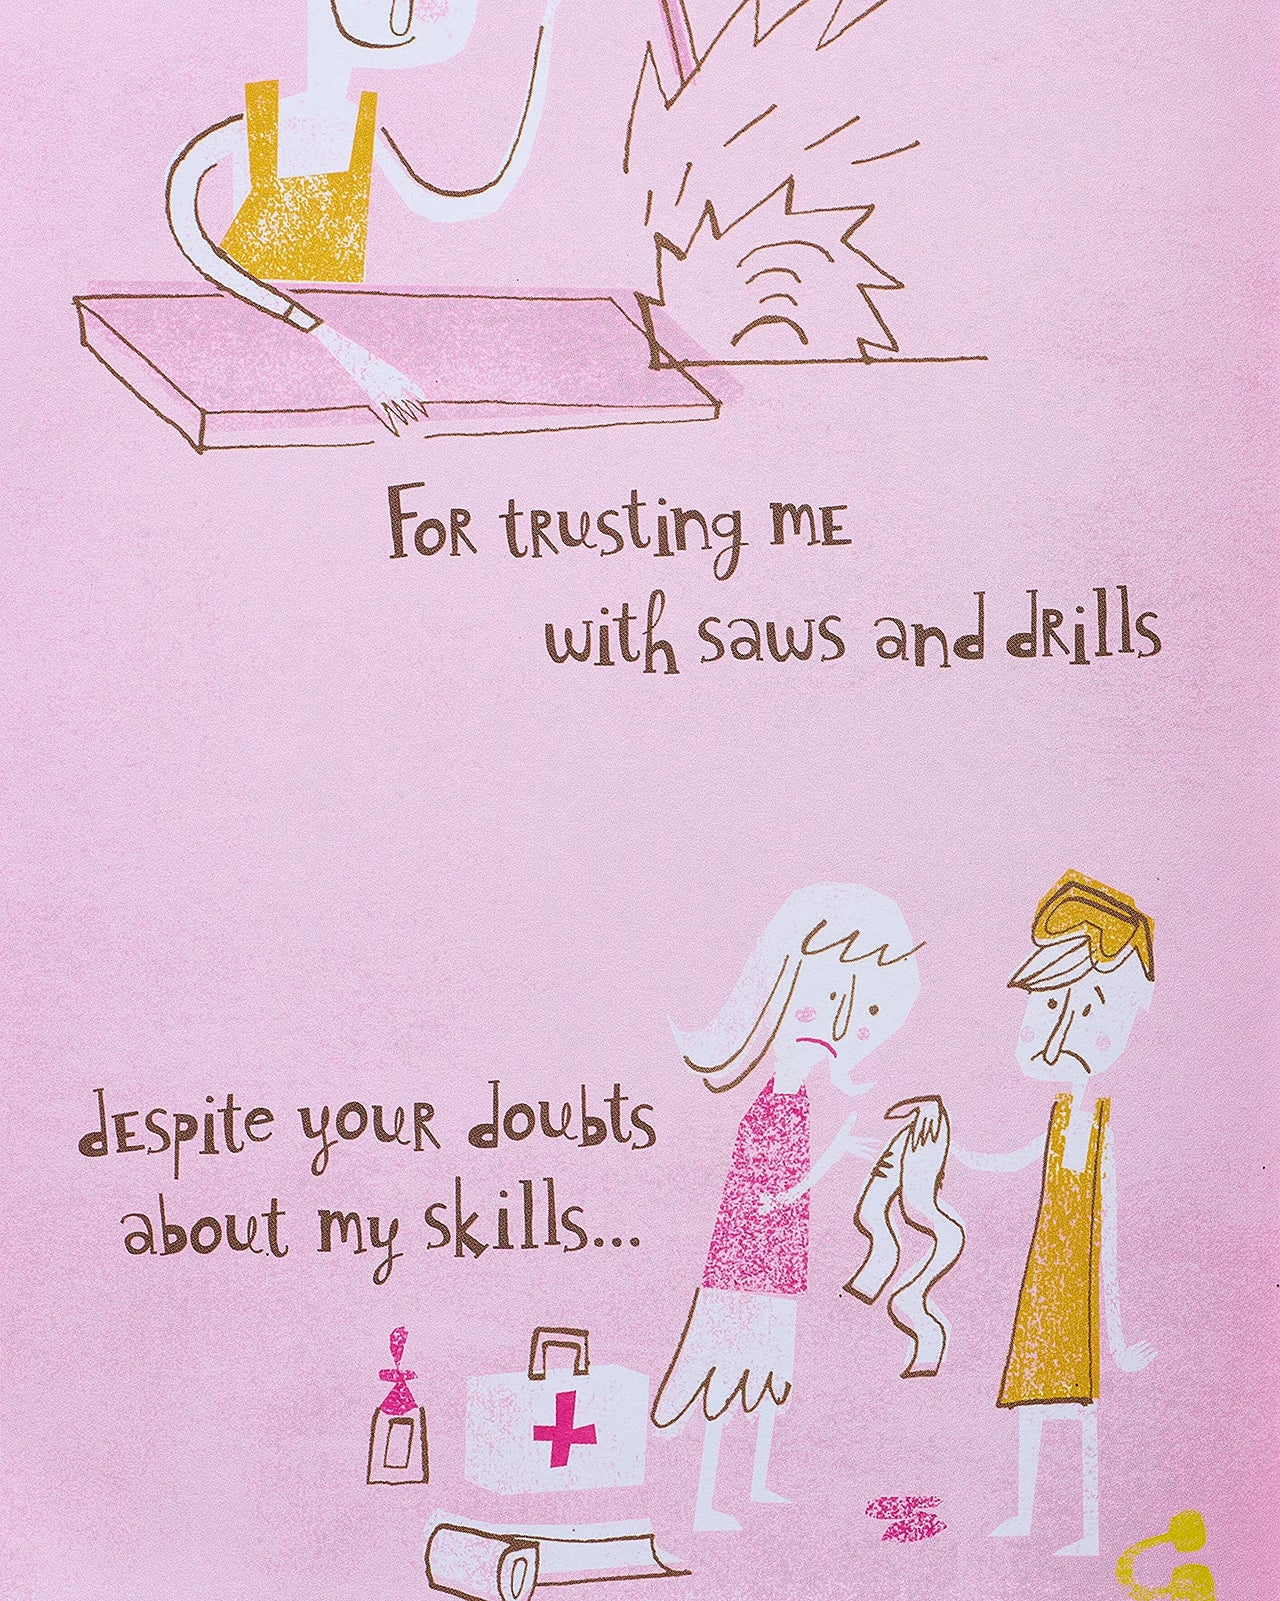 For trusting me
with saws and drills
despite your doubts
about my skills...